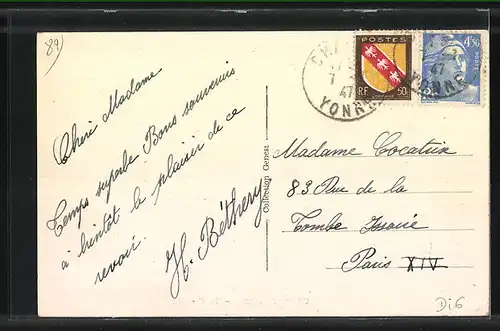 89
Chère Madame
Temps superbe Bons souvenirs
à bientôt le plaisir de ce
revoir.
H. Béthery
Collection Genest
POSTES
RF 50
4F50
47
YONNE
47
YONNE
Madame Cocatrix
83 Rue de la
Tombe Issoire
Paris XIV
Di6